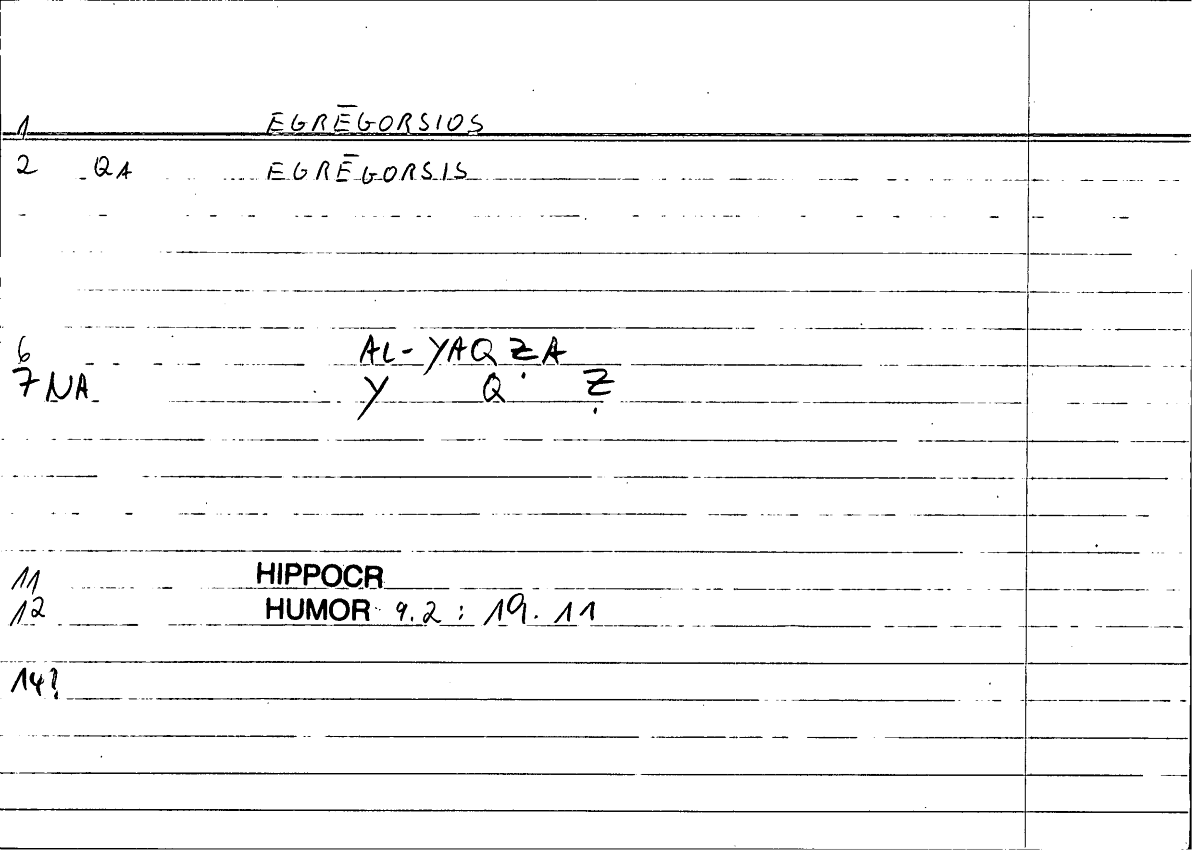 1 EGRĒGORSIOS
2 QA EGRĒGORSIS
6 AL-YAQẒA
7 NA Y Q Ẓ
11 HIPPOCR
12 HUMOR 9.2 : 19.11
14?